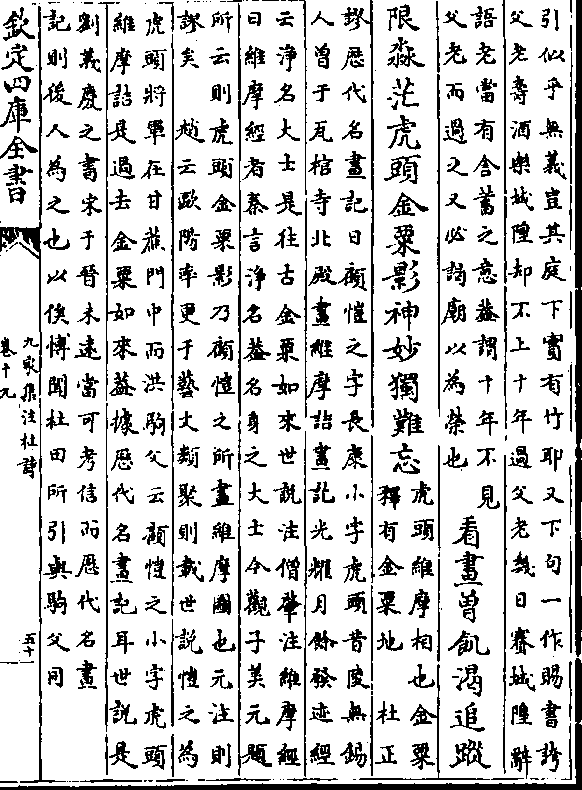 引似乎無義豈其庭下實有竹耶又下句一作賜書誇
父老壽酒樂城隍却不上十年過父老幾日賽城隍辭
語老當有含蓄之意蓋謂十年不見
父老而過之又必謁廟以為榮也
看畫曽飢渇追蹤
限淼茫虎頭金粟影神妙獨難忘
虎頭維摩相也金粟
釋有金粟地 杜正
謬歴代名畫記曰顧愷之字長康小字虎頭昔陵無錫
人曽于瓦棺寺北殿畫維摩詰畫訖光耀月餘發迹經
云淨名大士是往古金粟如來世説注僧肇注維摩經
曰維摩經者秦言淨名蓋名身之大士今觀子美元題
所云則虎頭金粟影乃顧愷之所畫維摩圖也元注則
謬矣 趙云歐陽率更于藝文類聚則載世説愷之為
虎頭將軍在甘蕉門中而洪駒父云顧愷之小字虎頭
維摩詰是過去金粟如來蓋據歴代名畫記耳世説是
劉義慶之書宋于晉未逺當可考信而歴代名畫
記則後人為之也以俟博聞杜田所引與駒父同
欽定四庫全書
九家集注杜詩
卷十九
五十